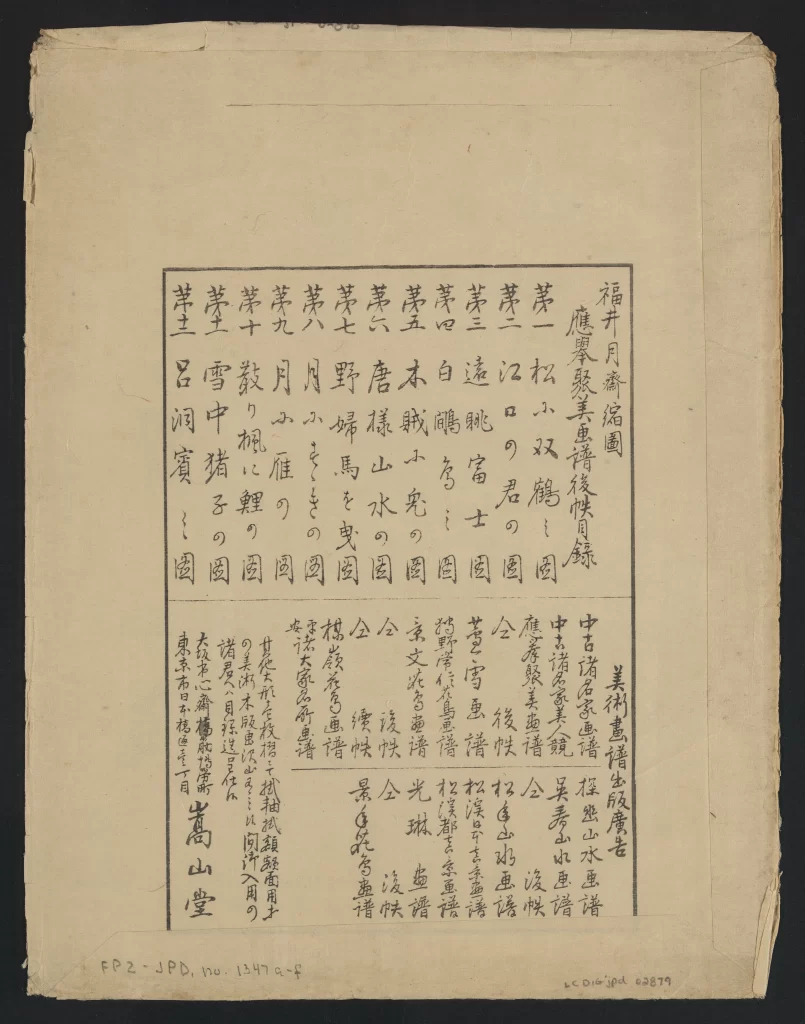 福井月齋縮圖
應擧聚美画譜後帙目錄
第一 松小双鶴之圖
第二 江口の君の圖
第三 遠眺富士圖
第四 白鷴鳥之圖
第五 木賊小兎の圖
第六 唐様山水の圖
第七 野婦馬を曳圖
第八 月小すゝきの圖
第九 月小雁の圖
第十 散り楓に鯉の圖
第十一 雪中猪子の圖
第十二 呂洞賓之圖
美術畫譜出版廣告
中古諸名家画譜
中古諸名家美人競
應擧聚美画譜
仝 後帙
蘆雪画譜
狩野常信花鳥画譜
景文花鳥畫譜
仝 後帙
仝 續帙
楳嶺花鳥画譜
平安諸大家名所画譜
探幽山水画譜
吳春山水画譜
仝 後帙
松年山水画譜
松渓日本真景畫譜
松渓都真景画譜
光琳畫譜
仝 後帙
景年花鳥畫譜
其他大形全枚摺ニて掛軸掛額額面用等
の美術木版画沢山有之候間御入用の
諸君ハ目録送呈仕候
大坂市心齋橋筋博労町
東京市日本橋通壱丁目
嵩山堂
FP2-JPD, no. 1347 a-f
LC DIG jpd 02879